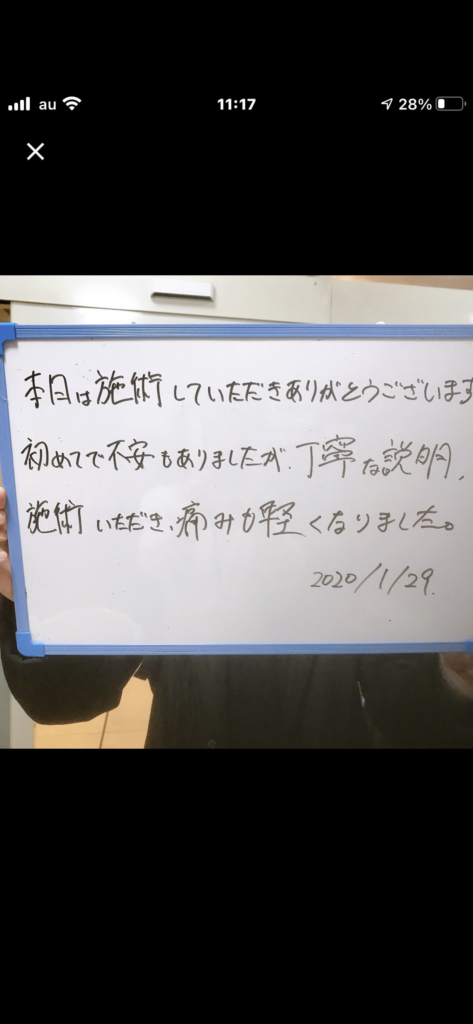 au 11:17 28%
本日は施術していただきありがとうございます
初めてで不安もありましたが、丁寧な説明、
施術いただき、痛みも軽くなりました。
2020/1/29.